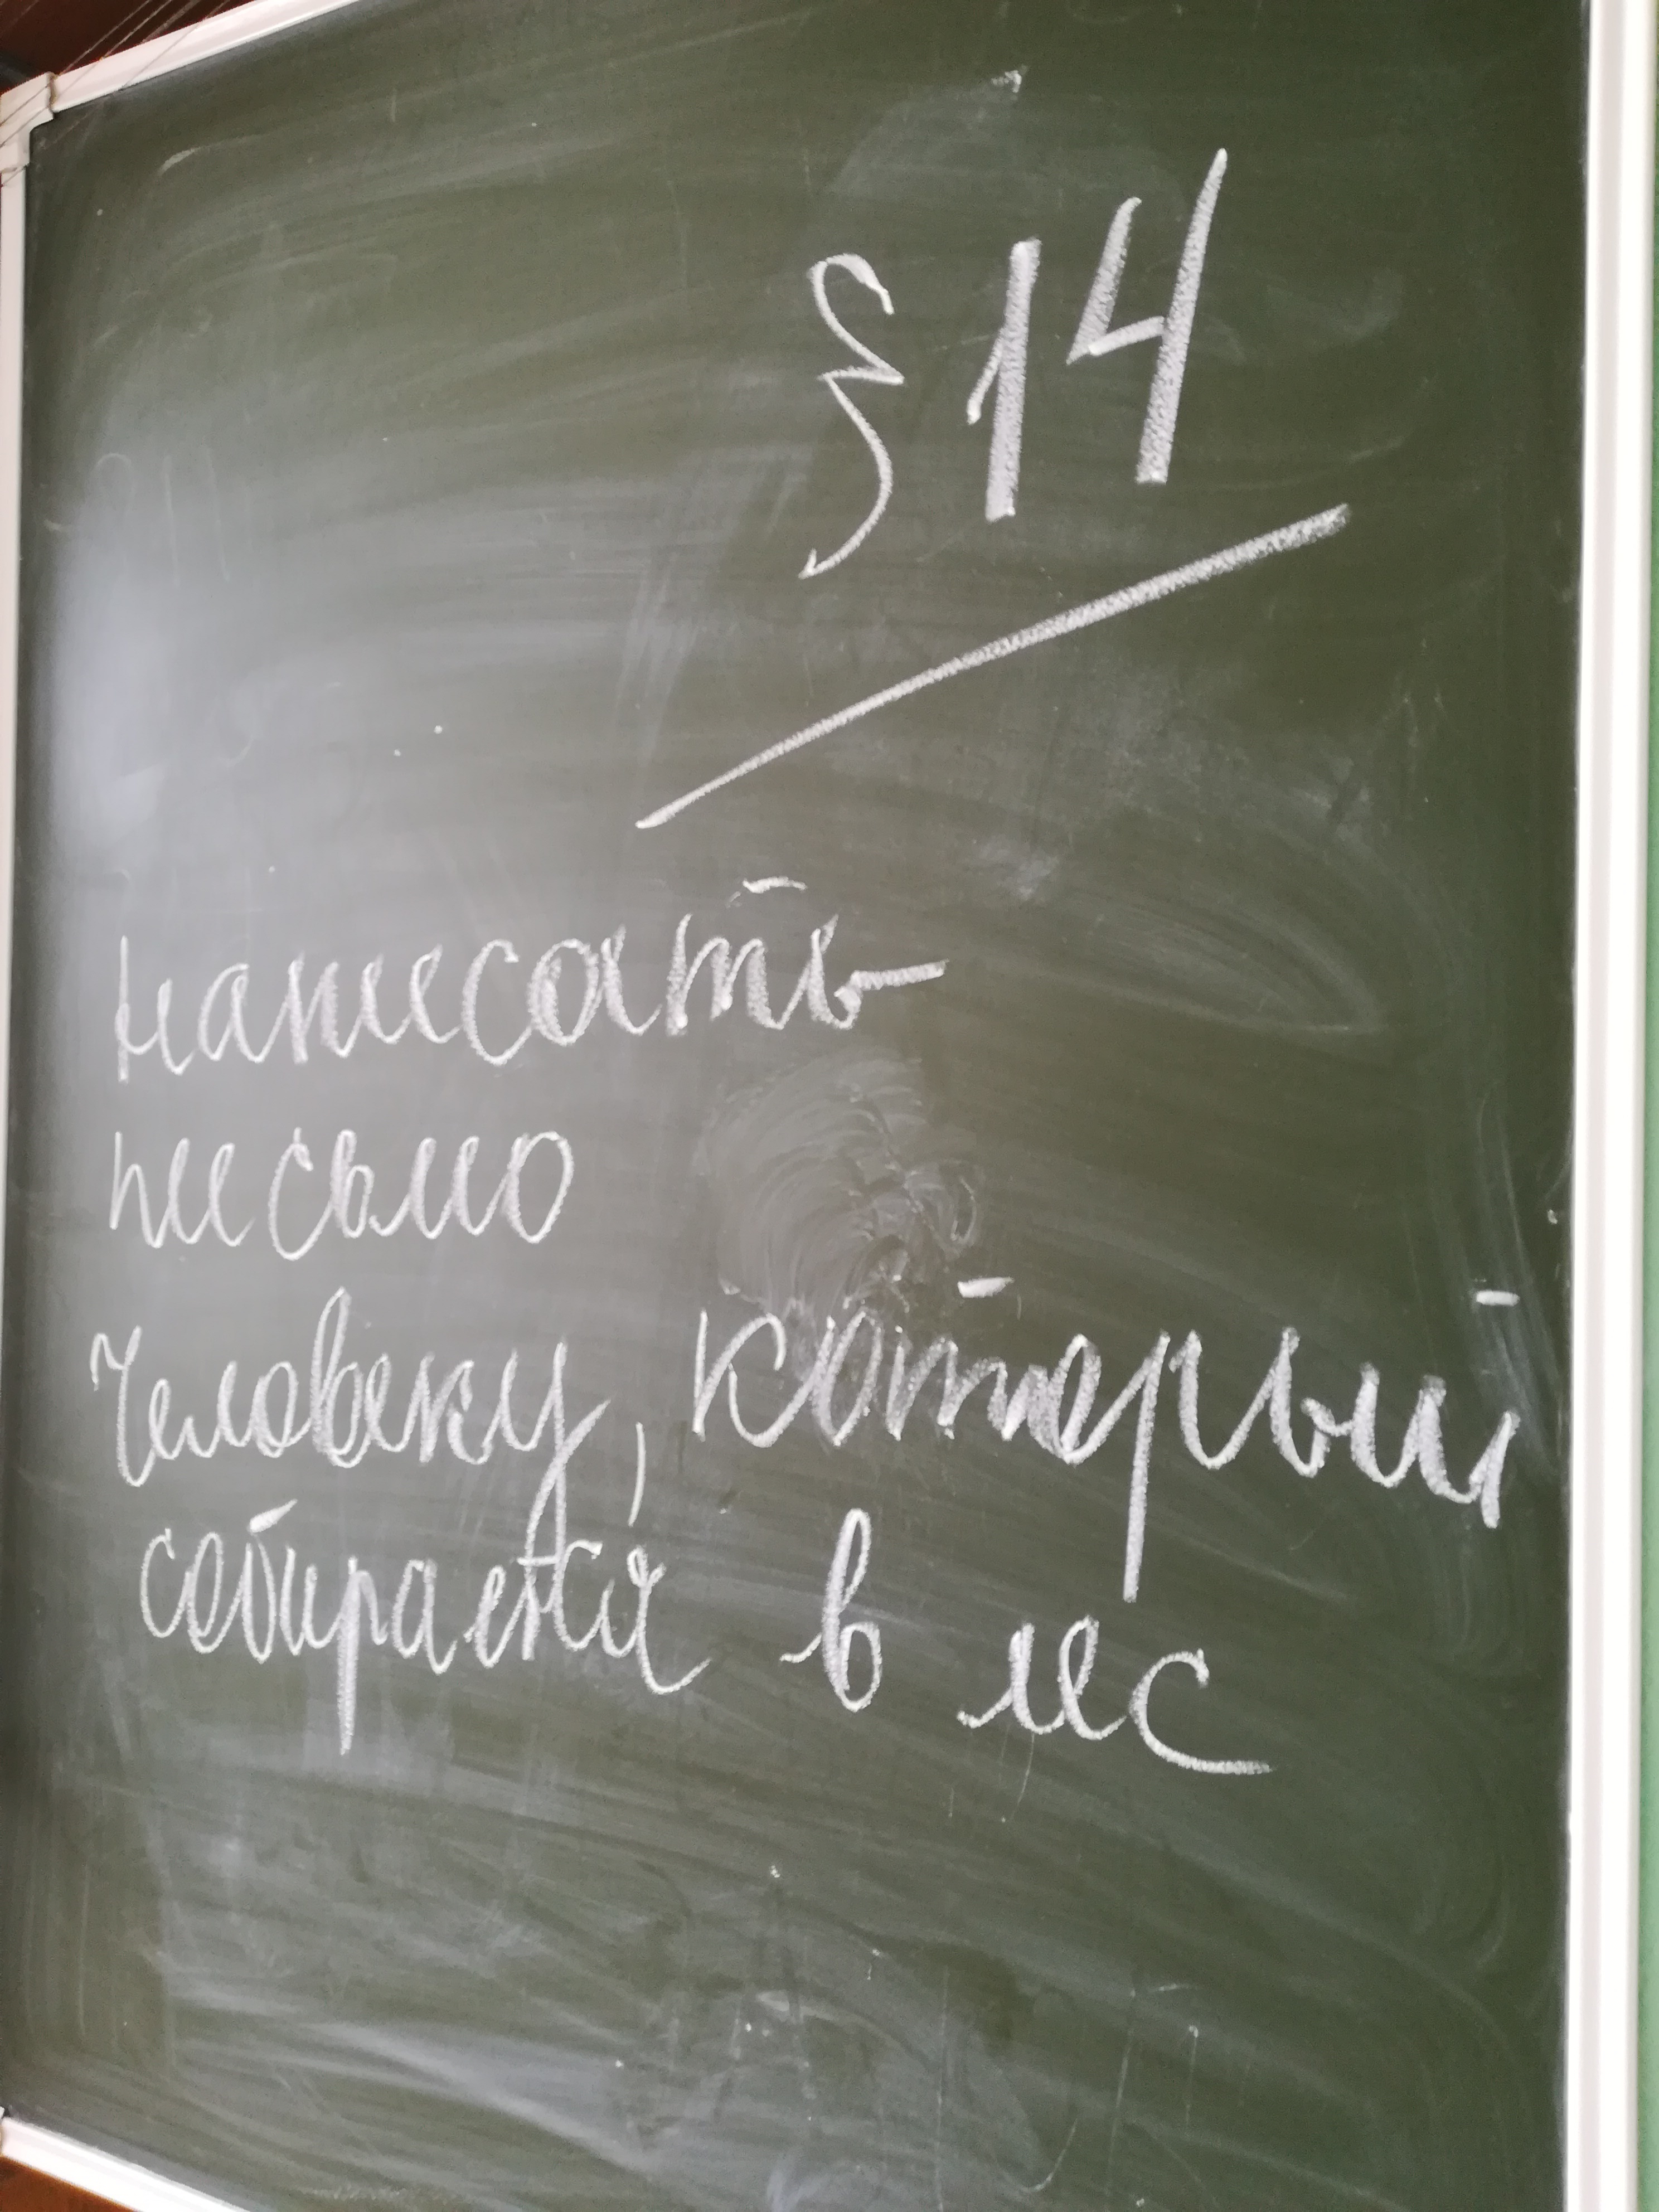 §14
написать
письмо
человеку, который
собирается в лес